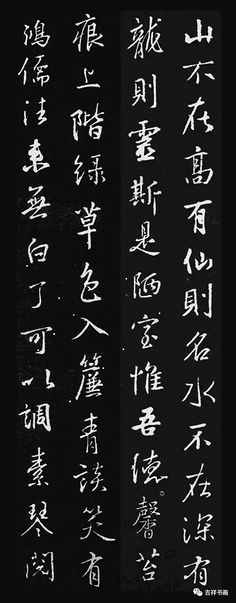 山不在高有仙則名水不在深有
龍則靈斯是陋室惟吾德馨苔
痕上階綠草色入簾青談笑有
鴻儒往来無白丁可以調素琴閱
吉祥书画